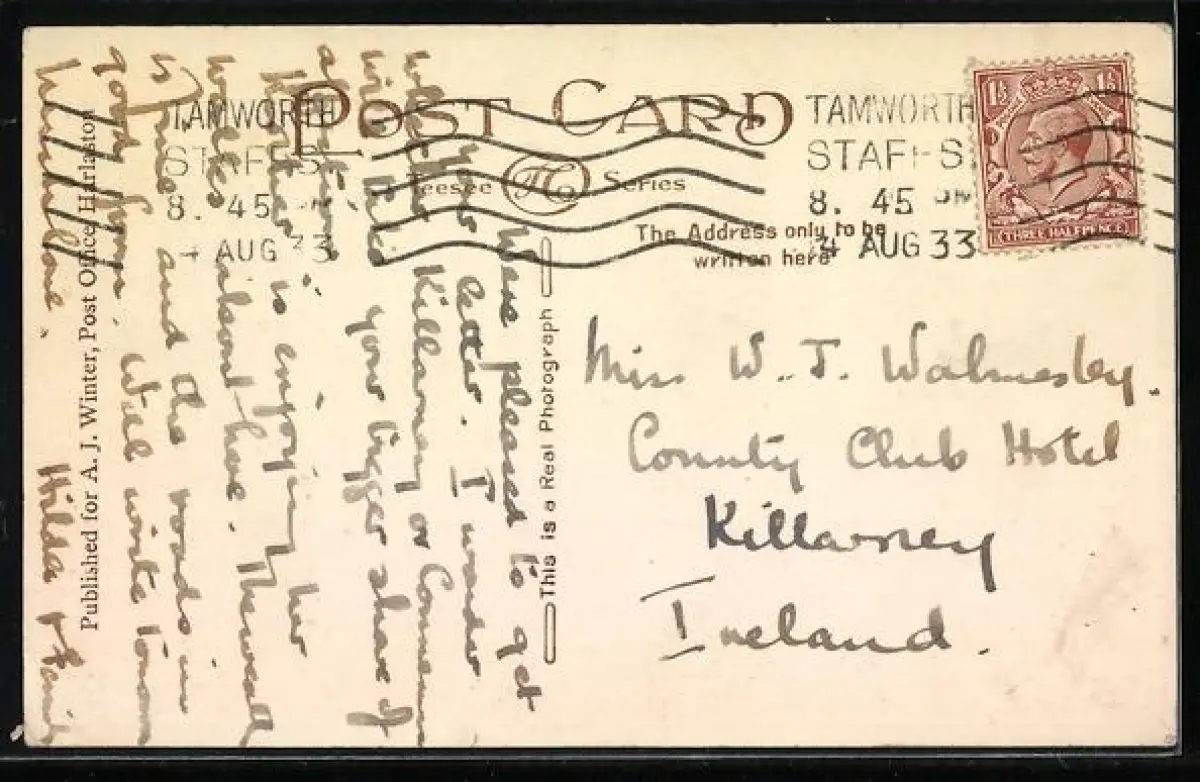 POST CARD
Teesee Series
The Address only to be
written here
TAMWORTH
STAFFS
8. 45 PM
4 AUG 33
TAMWORTH
STAFFS
8. 45 PM
4 AUG 33
1½ 1½
THREE HALFPENCE
This is a Real Photograph
Published for A. J. Winter, Post Office Harlaston
Were pleased to get
your letter. I wonder
whether Killarney or Connem
will take your bigger share of
Mother is enjoying her
walks about here. The weath
is fine and the roads in
good form. Will write tomorr
Hilda &
Miss W. J. Walmesley.
County Club Hotel
Killarney
Ireland.